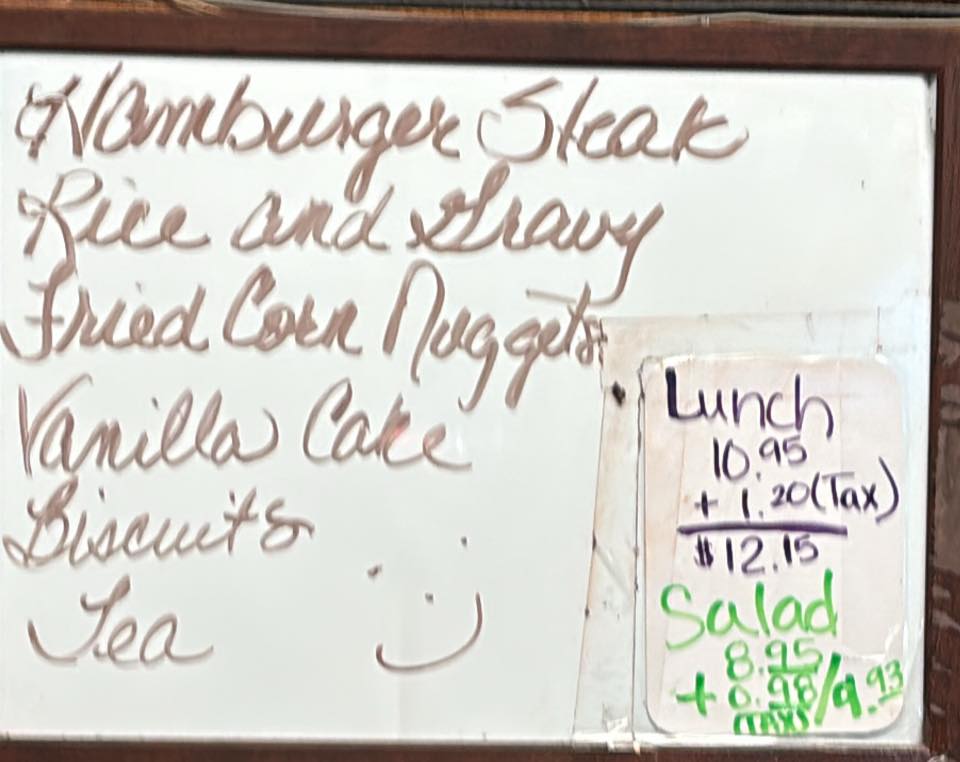 Hamburger Steak
Rice and Gravy
Fried Corn Nuggets
Vanilla Cake
Biscuits
Tea
Lunch
10.95
+ 1.20 (Tax)
$12.15
Salad
8.95
+ 0.98 / 9.93
(TAX)